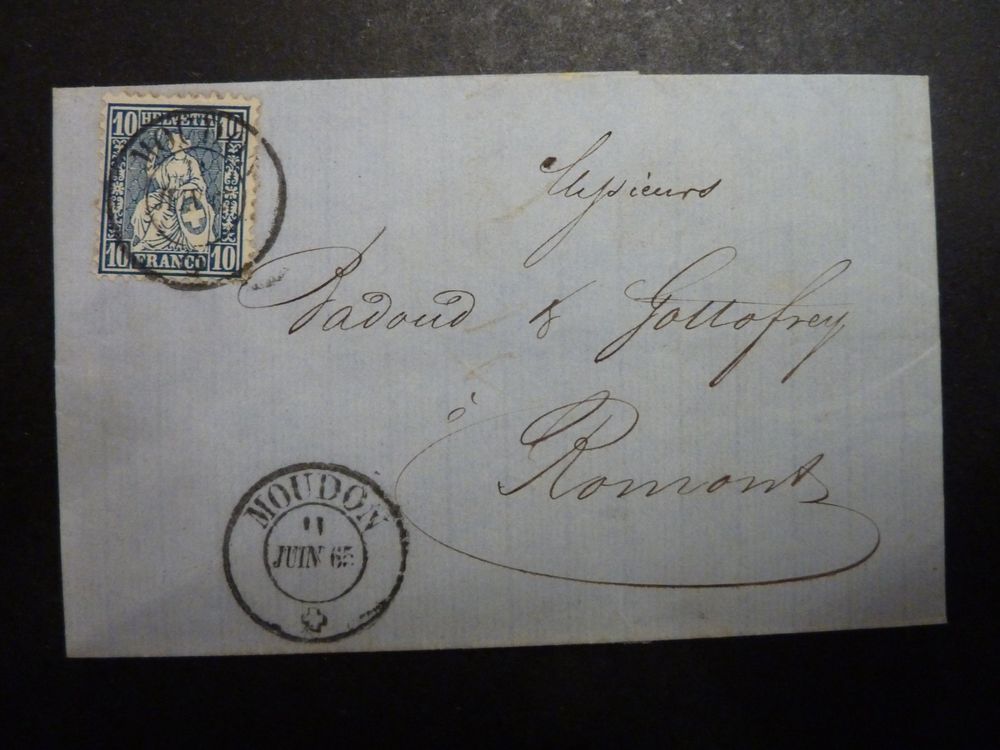 10 HELVETIA 10
10 FRANCO 10
Messieurs
Dadoud & Gottofrey
à
Romont
MOUDON
11
JUIN 65